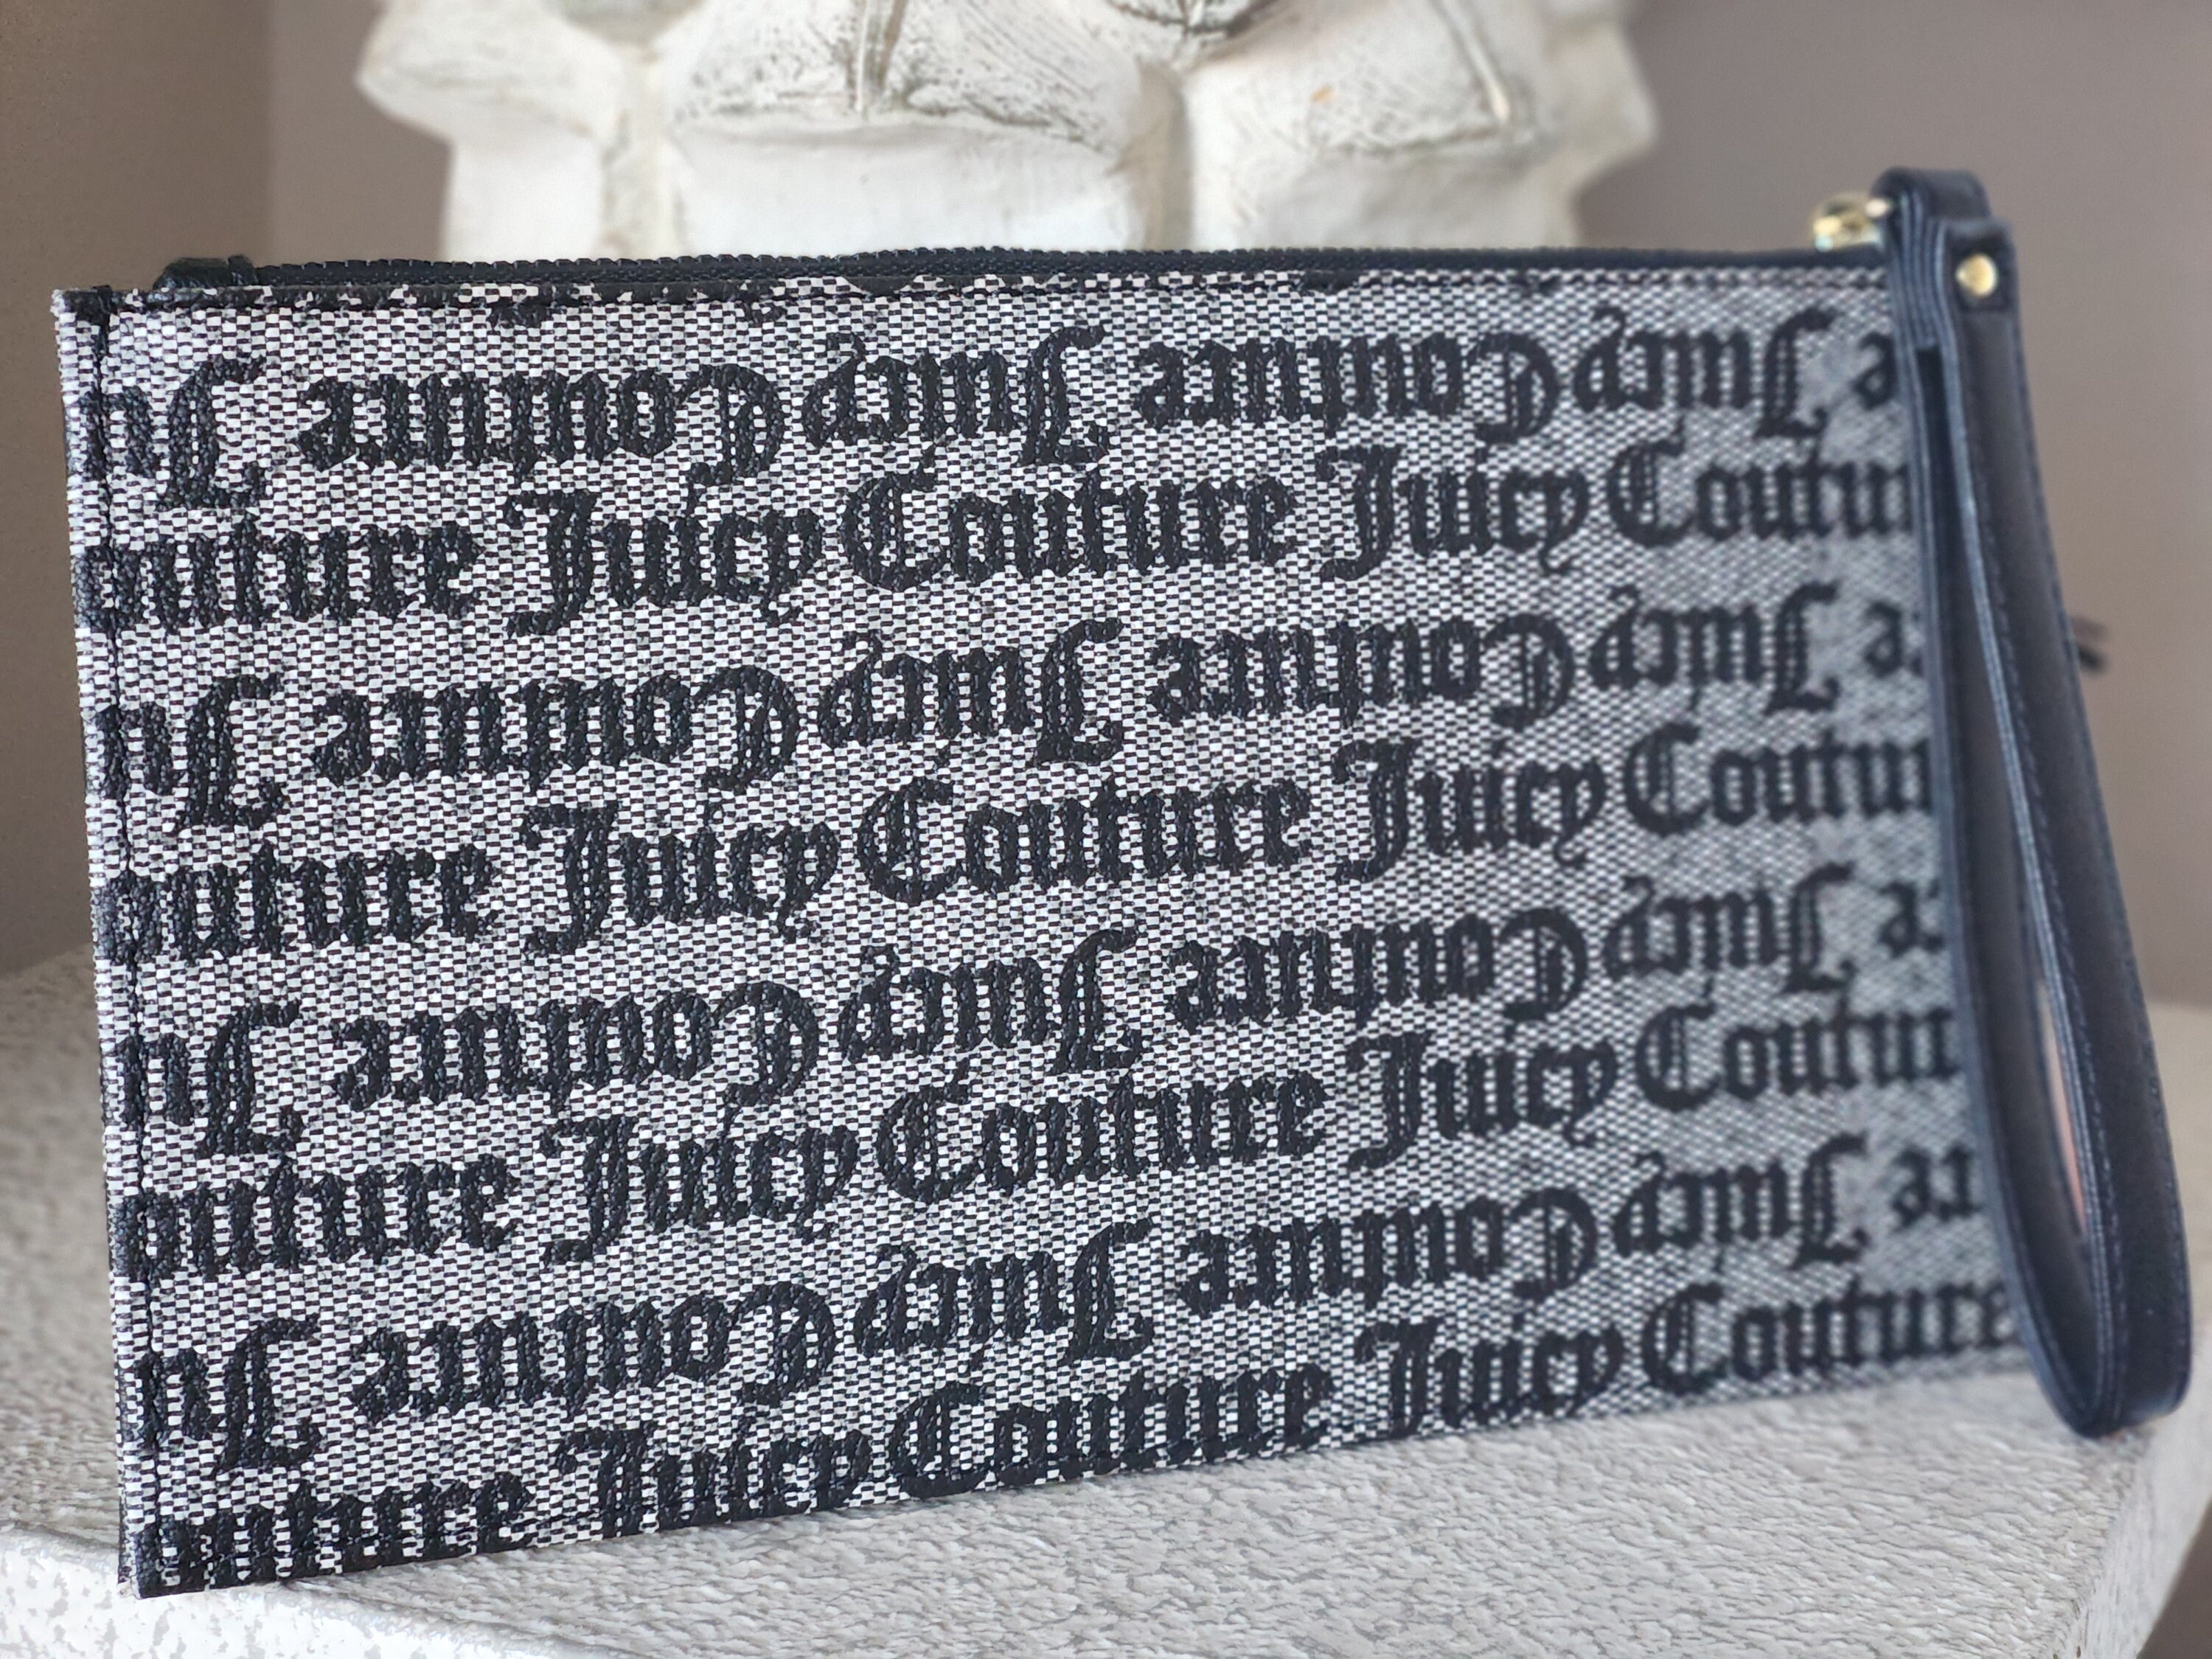 e Juicy Couture Juicy Couture Ju
outure Juicy Couture Juicy Coutur
re Juicy Couture Juicy Couture Ju
outure Juicy Couture Juicy Coutur
re Juicy Couture Juicy Couture Ju
outure Juicy Couture Juicy Coutur
re Juicy Couture Juicy Couture Ju
outure Juicy Couture Juicy Couture